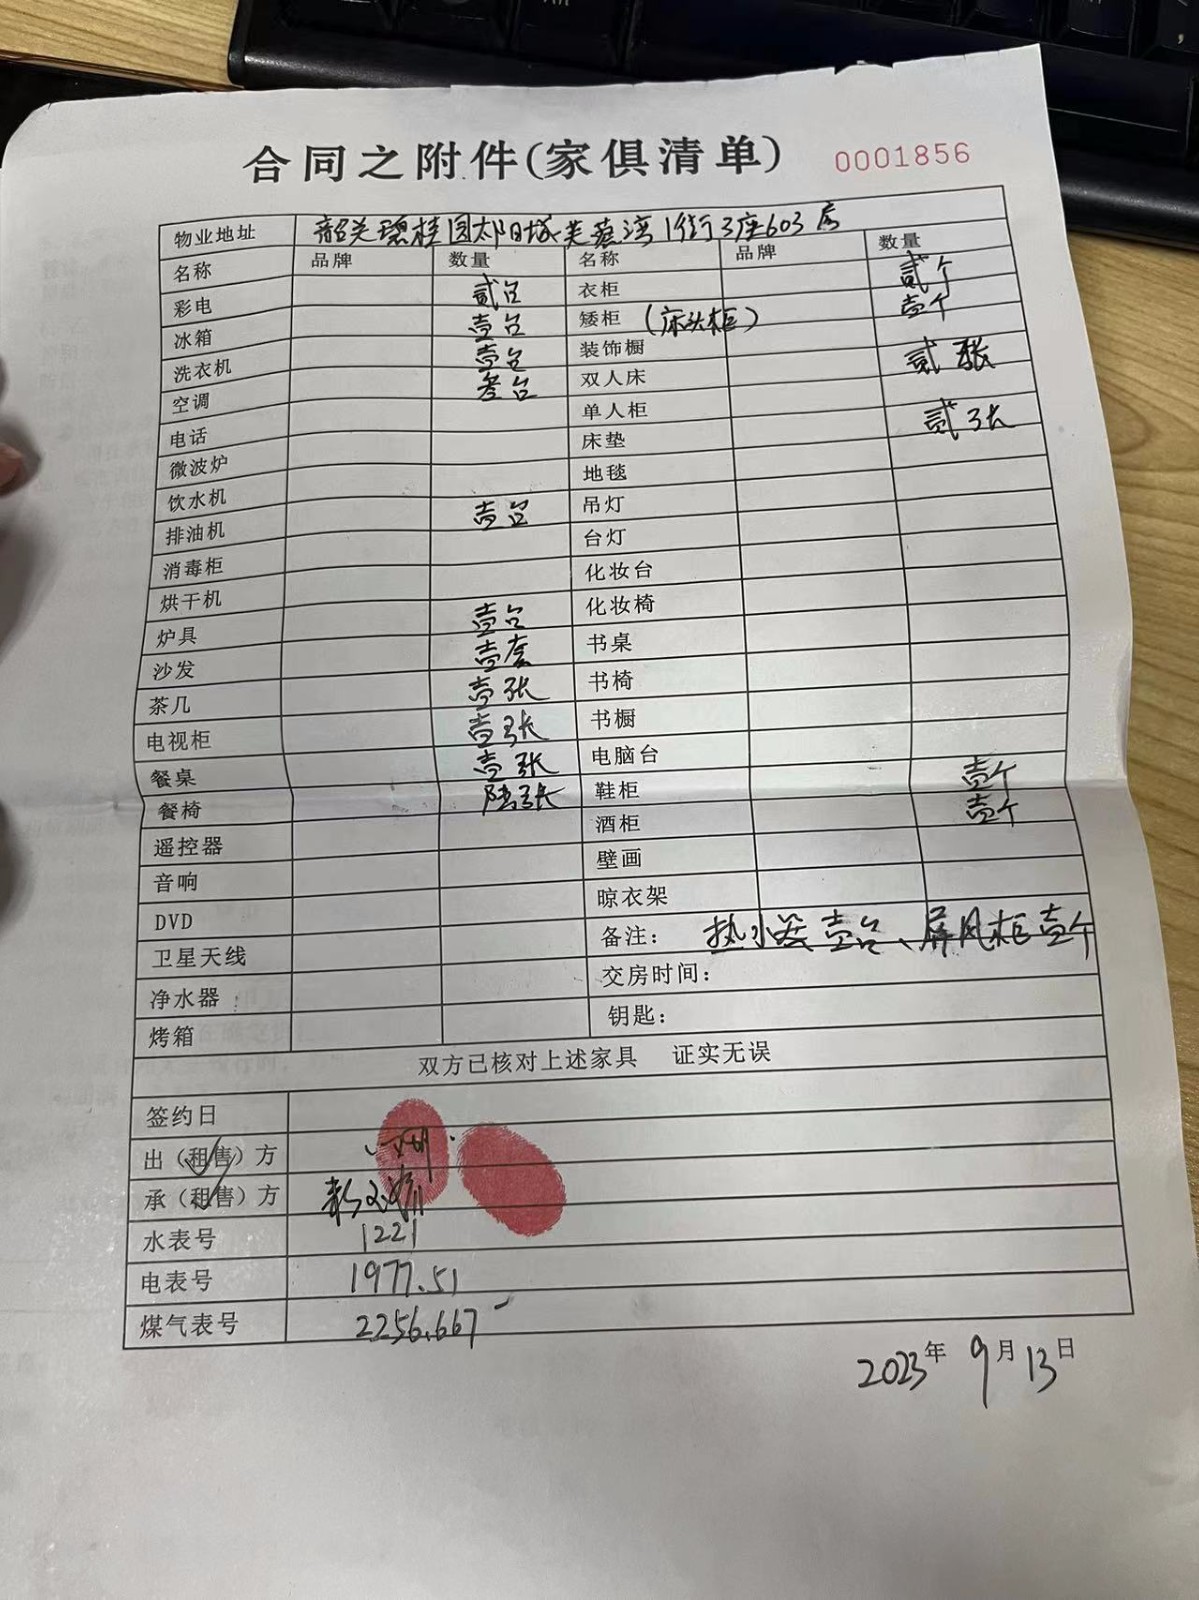 合同之附件(家俱清单) 0001856
物业地址 韶关碧桂园太阳城芙蓉湾1街3座603房
名称 品牌 数量 名称 品牌 数量
彩电 贰台 衣柜 贰个
冰箱 壹台 矮柜 (床头柜) 壹个
洗衣机 壹台 装饰橱
空调 叁台 双人床 贰张
电话 单人柜
微波炉 床垫 贰张
饮水机 地毯
排油机 壹台 吊灯
消毒柜 台灯
烘干机 化妆台
炉具 壹台 化妆椅
沙发 壹套 书桌
茶几 壹张 书椅
电视柜 壹张 书橱
餐桌 壹张 电脑台
餐椅 陆张 鞋柜 壹个
遥控器 酒柜 壹个
音响 壁画
DVD 晾衣架
卫星天线 备注: 热水器壹台、屏风柜壹个
净水器 交房时间:
烤箱 钥匙:
双方已核对上述家具 证实无误
签约日
出(租售)方
承(租售)方
水表号 1221
电表号 1977.51
煤气表号 2256.667
2023年9月13日